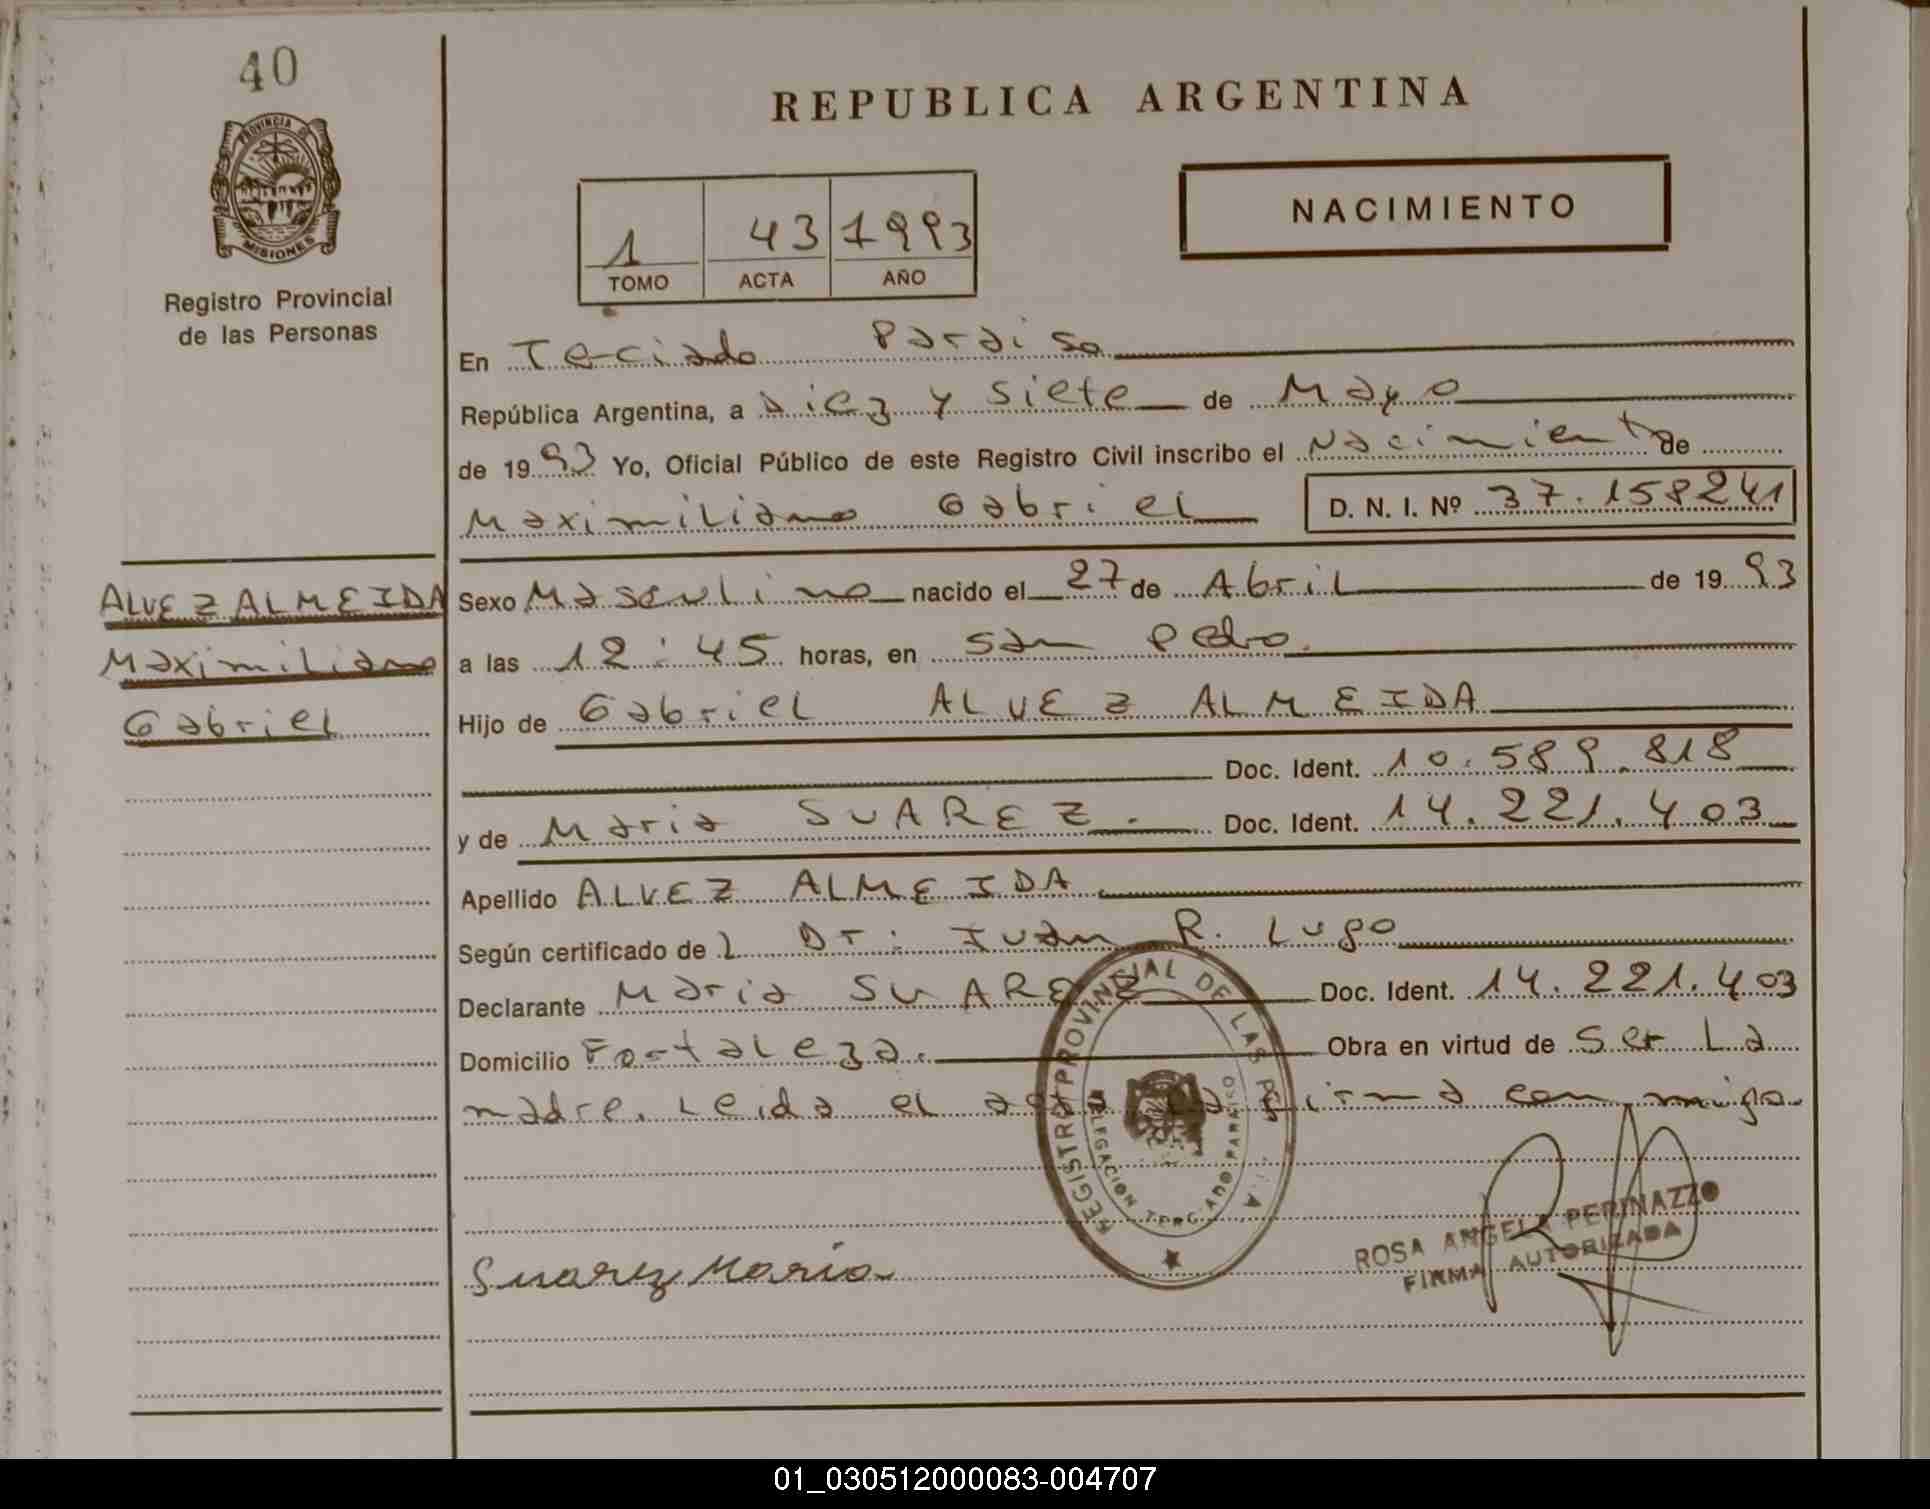 40
PROVINCIA DE
MISIONES
Registro Provincial
de las Personas
REPUBLICA ARGENTINA
1 43 1993
TOMO ACTA AÑO
NACIMIENTO
En Terciado Paraiso
República Argentina, a Diez y Siete de Mayo
de 1993 Yo, Oficial Público de este Registro Civil inscribo el Nacimiento de
Maximiliano Gabriel D. N. I. Nº 37.158241
ALVEZ ALMEIDA
Maximiliano
Gabriel
Sexo Masculino nacido el 27 de Abril de 1993
a las 12:45 horas, en San Pedro.
Hijo de Gabriel ALVEZ ALMEIDA
Doc. Ident. 10.589.818
y de Maria SUAREZ. Doc. Ident. 14.221.403
Apellido ALVEZ ALMEIDA.
Según certificado de L Dr: Juan R. Lugo
Declarante Maria SUAREZ Doc. Ident. 14.221.403
Domicilio Fortaleza. Obra en virtud de Ser La
madre. Leida el acta La firma con migo.
REGISTRO PROVINCIAL DE LAS
DELEGACION PARAISO
Suarez Maria
ROSA ANGELA PERINAZZO
FIRMA AUTORIZADA
01_030512000083-004707